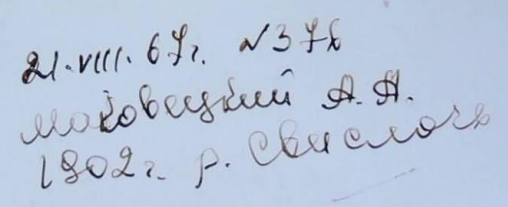 21.VIII.67г. N376
Маковецкий А.А.
1902г. р. Свислочь